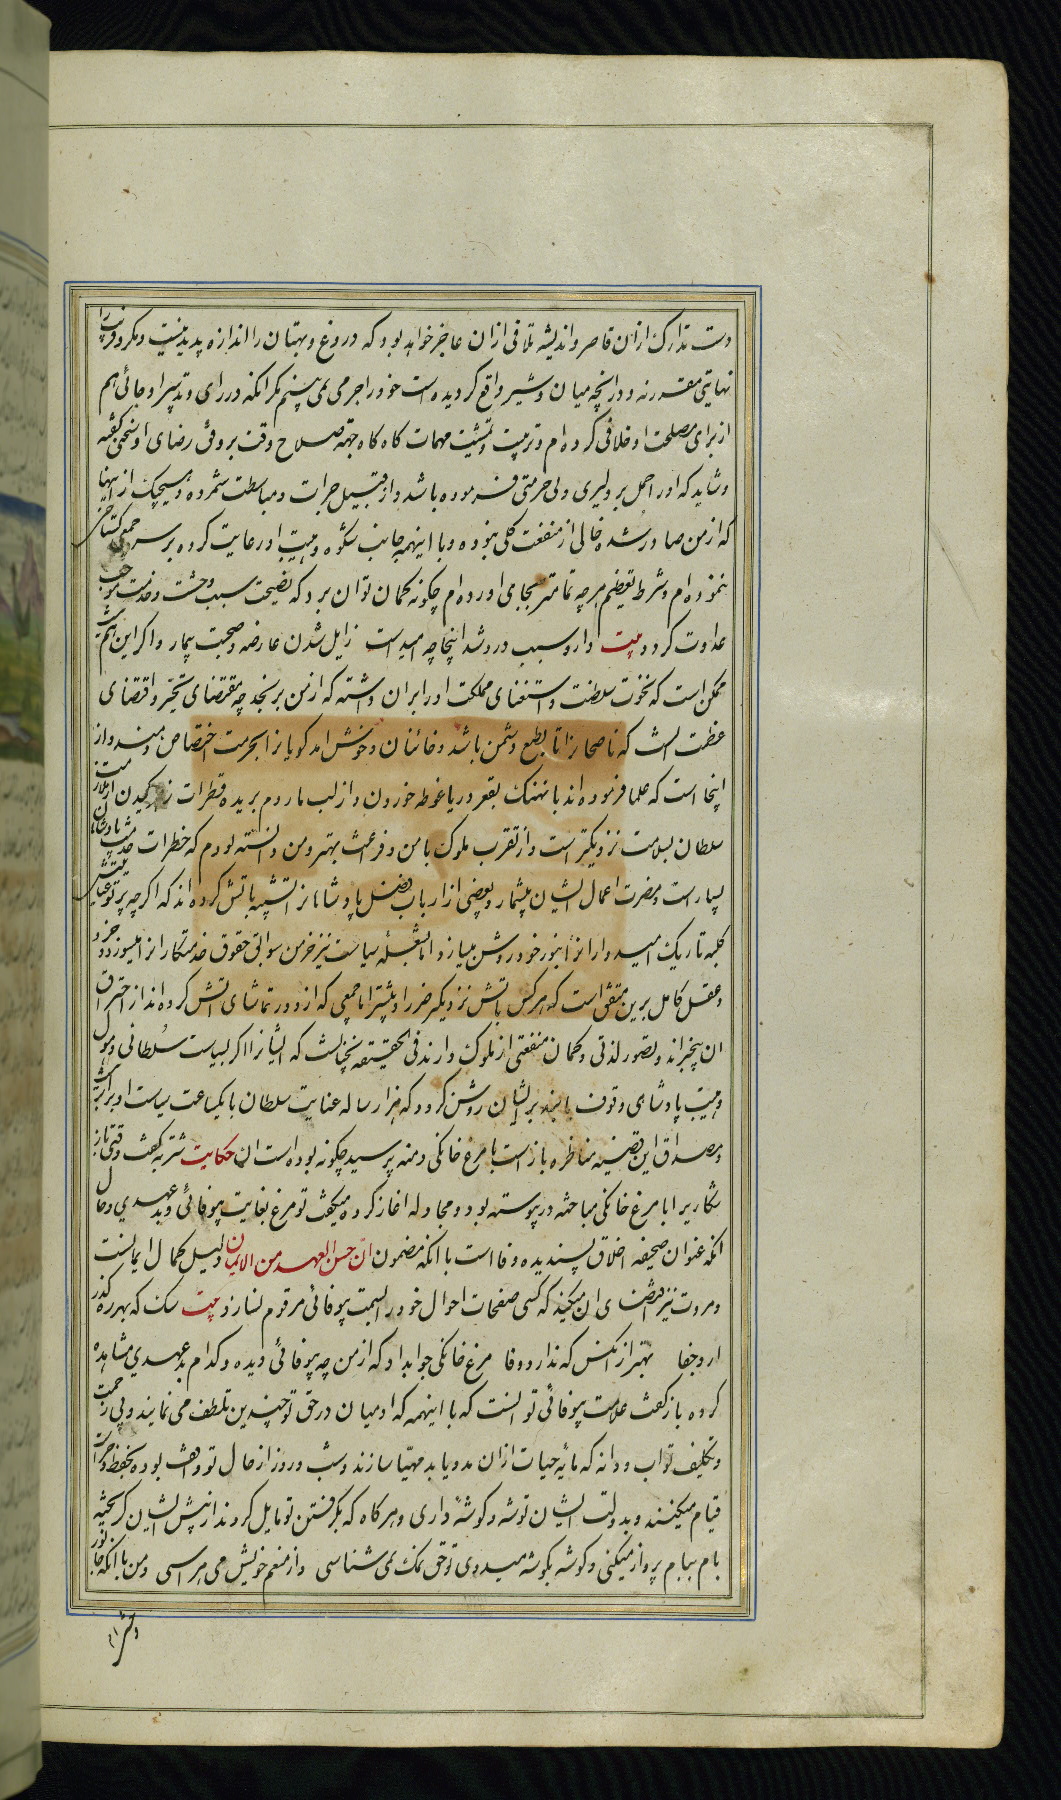 دست تدارک ازان قاصر و اندیشه تلافی ازان عاجز خواهد بود که دروغ و بهتان را اندازه پدید نیست و مکر و فریب را
نهایتی مقرر نه و درانچه میان و شیر واقع کردیده است خود را جرمی نمی بینم مکر انکه در رای و تدبیر او جائی هم
از برای مصلحت او خلافی کرده ام و تربیت و تمشیت مهمات کاه کاه جهة صلاح وقت بروفق رضای او سخنی نکفته
و شاید که انرا حمل بر دلیری و بی حرمتی فرموده باشد و از قبیل جرات و مباسطت شمرده و هیچیک از اینها
که از من صادر شده خالی از منفعت کلی نبوده و با اینهمه جانب شکوه و هیبت او رعایت کرده بر سر جمع کستاخی
ننموده ام و شرط تعظیم هر چه تمامتر بجای اورده ام چکونه کمان توان برد که نصیحت سبب وحشت و خدمت موجب
عداوت کردد بیت دارو سبب درد شد اینجا چه امیدست زایل شدن عارضه و صحت بیمار و اکر این هم
ممکن است که نخوت سلطنت و استغنای مملکت او را بران داشته که از من برنجد چه مقتضای تجبر و اقتضای
عظمت انست که ناصحانرا تا بطبع دشمن باشد و خائنان و خوش امد کویانرا بحرمت اختصاص دهند و از
اینجا است که علما فرموده اند با نهنک بقعر دریا غوطه خوردن و از لب مار دم بریده قطرات زهر مکیدن از ملازمت
سلطان بسلامت نزدیکتر است و از تقرب ملوک بامن و فرغت بهتر و من دانسته بودم که خطرات خدمت پادشاهان
بسیارست و مضرت اعمال ایشان بیشمار و بعضی از ارباب فضل پادشاهانرا تشبیه باتش کرده اند که اکرچه پرتو عنایتش
کلبه تاریک امیدوارانرا بنور خود روشن میسازد اما بشعله سیاست نیز خرمن سوابق حقوق خدمتکارانرا میسوزد و خرد
و عقل کامل برین متفق است که هر کس باتش نزدیکتر ضرر او بیشتر اما جمعی که از دور تماشای اتش کرده اند از احتراق
ان بیخبراند و بتصور لذتی و کمان منفعتی از ملوک دارند فی الحقیقه نه چنانست که ایشانرا اکر بسیاست سلطانی و هول
و هیبت پادشاهی وقوف یابند بر ایشان روشن کردد که هزار ساله عنایت سلطان با یکساعت سیاست او برابر نیست
و مصداق این قضیه مناظره بازست با مرغ خانکی دمنه پرسید چکونه بوده است ان حکایت شتربه کفت وقتی باز
شکاری را با مرغ خانکی مباحثه در پیوسته بود و مجادله اغاز کرده میکفت تو مرغ بغایت بیوفائی و بدعهدی و حال
انکه عنوان صحیفه اخلاق پسندیده وفا است با انکه مضمون ان حسن العهد من الایمان دلیل کمال ایمانست
و مروت نیز مقتضی ان میکند که کسی صفحات احوال خود را بسمت بیوفائی مرقوم نسازد بیت سک که بهر ره کذر
ارد جفا بهتر از انکس که ندارد وفا مرغ خانکی جواب داد که از من چه بیوفائی دیده و کدام بدعهدی مشاهده
کرده باز کفت علامت بیوفائی تو انست که با اینهمه که ادمیان در حق تو چندین تلطف می نمایند و بی زحمت
و تکلیف تو اب و دانه که مایه حیات ازان مدد یابد مهیا سازند و شب و روز از حال تو واقف بوده بحفظ و حراست
قیام میکنند و بدولت ایشان توشه و کوشه داری و هر کاه که بکرفتن تو مایل کردند از پیش ایشان کریخته
بام ببام پرواز میکنی و کوشه بکوشه میدوی تو حق نمک نمی شناسی و از منعم خویش می هراسی و من با انکه جانور